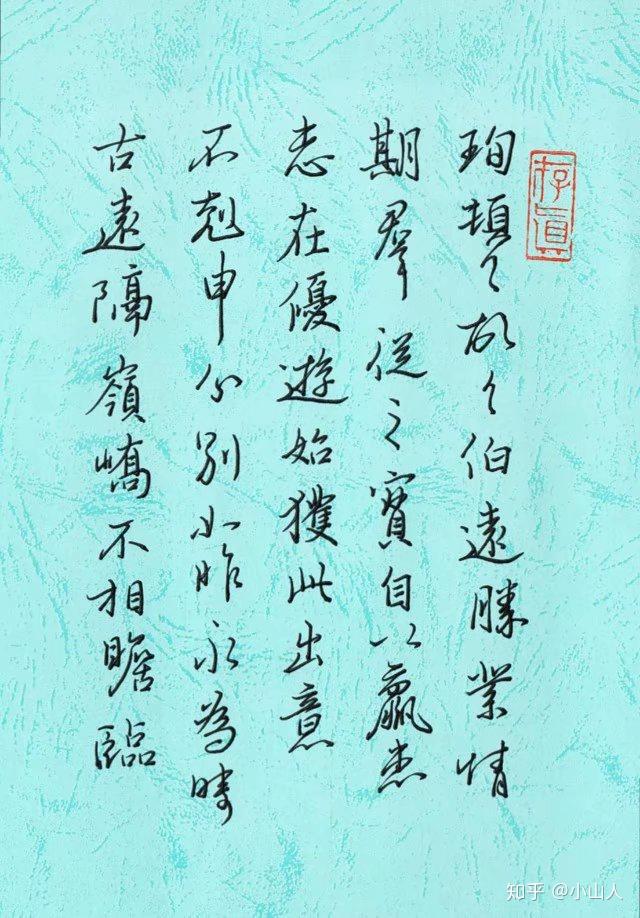 存眞
珣頓〻首〻伯遠勝業情
期羣從之寶自以羸患
志在優遊始獲此出意
不剋申分別如昨永為疇
古遠隔嶺嶠不相瞻臨
知乎 @小山人